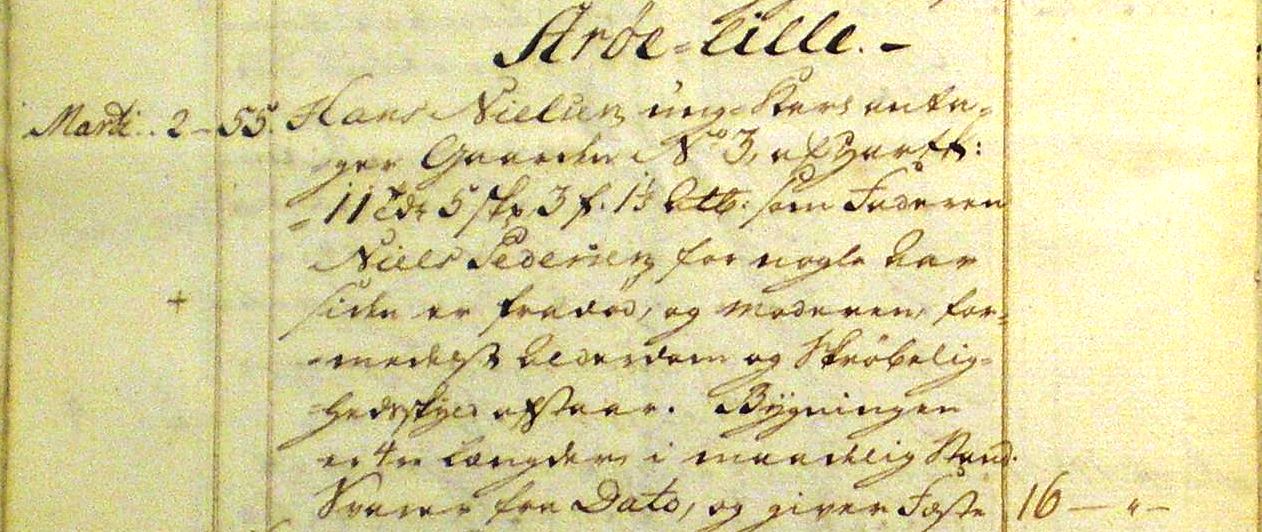 Arøe-Lille.-
Marti. 2 - 55. Hans Nielsen ung-Karl anta-
ger Gaarden No 3, af Hartk:
11 Tdr 5 skp 3 f. 1½ alb: som Faderen
Niels Pedersen for nogle Aar
siden er fradød, og Moderen for-
medelst Alderdom og Skrøbelig-
heds skyld afstaar. Bygningen
er 4re Længder, i maadelig Stand.
Svarer fra Dato, og giver Fæste 16 - " -
+